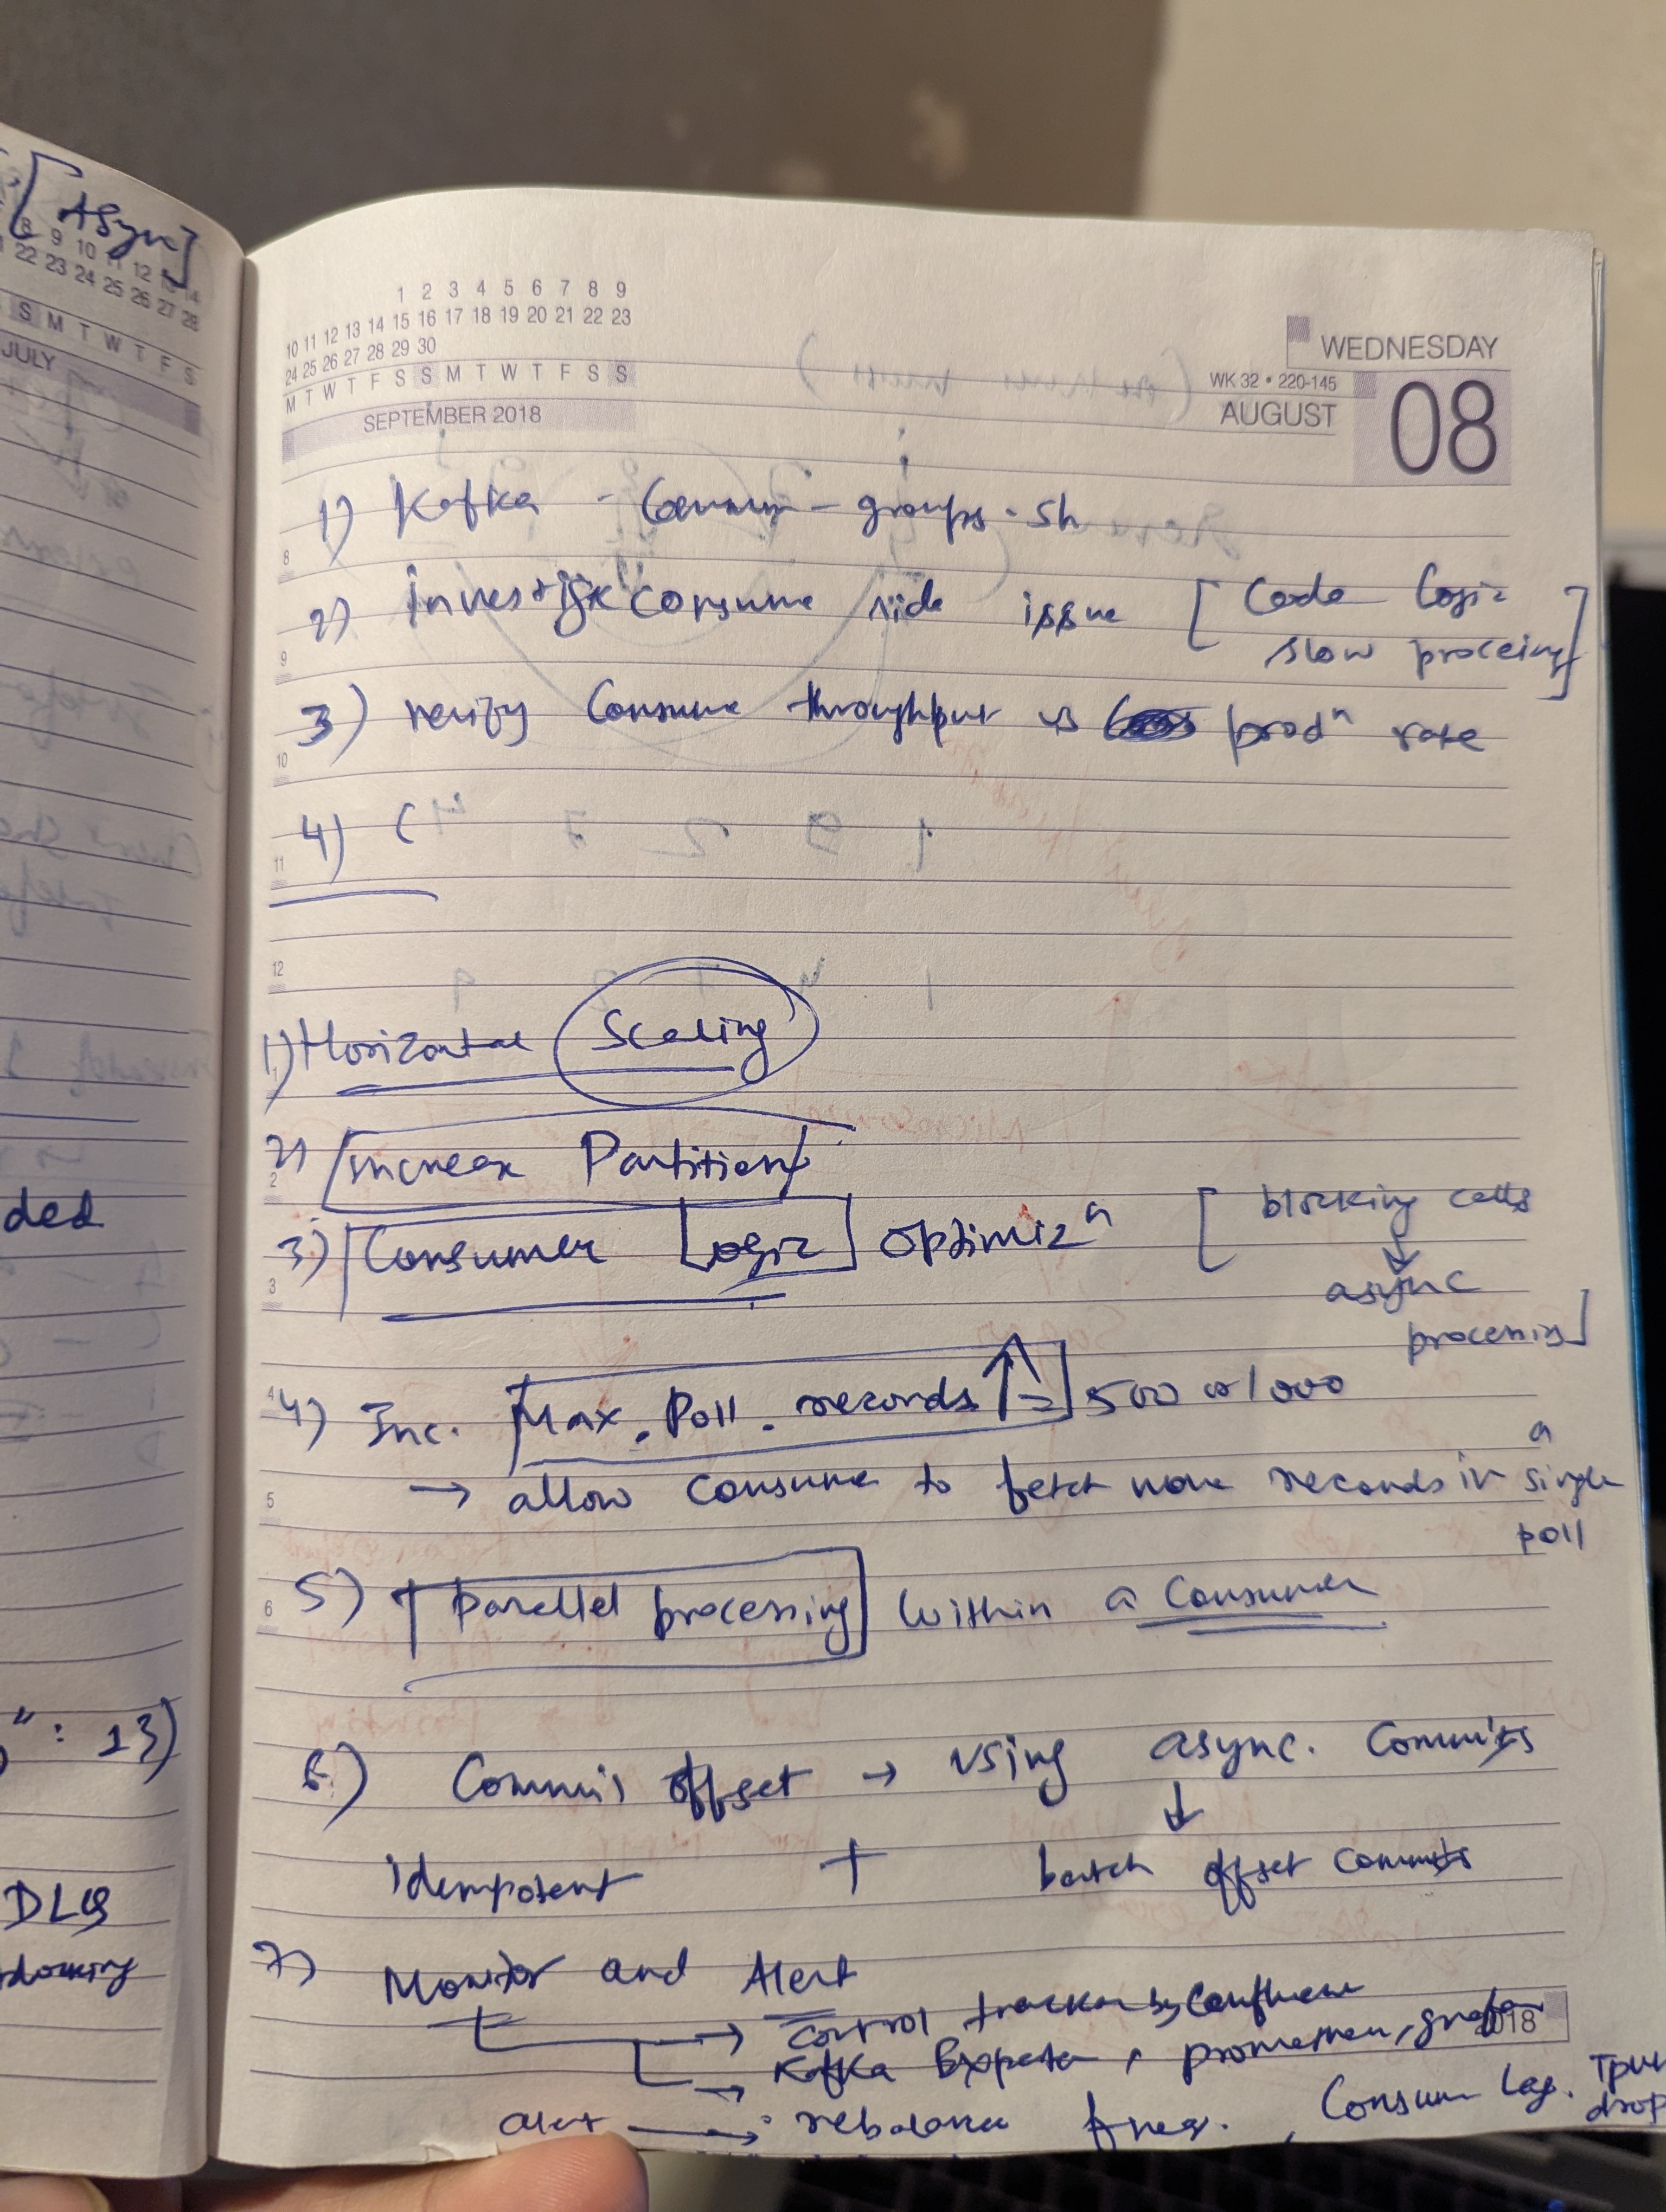 [Async]
8 9 10 11 12 13 14
22 23 24 25 26 27 28
S M T W T F S
JULY
ded
": 13)
DLQ
1 2 3 4 5 6 7 8 9
10 11 12 13 14 15 16 17 18 19 20 21 22 23
24 25 26 27 28 29 30
M T W T F S S M T W T F S S
SEPTEMBER 2018
WEDNESDAY
WK 32 • 220-145
AUGUST
08
1) Kafka - - groups . sh
2) consume side issue [ Code logic
slow proceing ]
3) verify Consume throughput vs prodn rate
4) (
8
9
10
11
12
1) Horizontal Scaling
2) Increase Partitions
3) Consumer Logic Optimizn [ blocking calls
↓
async
processing ]
4) Inc. Max . Poll . records ↑ = 500 or 1000
→ allow consume to fetch more records in a single
poll
5) ↑ parallel processing within a consumer
6) Commit offset → using async. Commits
↓
idempotent + batch offset commits
7) Monitor and Alert
→ control by Confluen
→ Kafka , prometheu, grafan
2018
alert → rebalance freq. , Consum Lag.
drop